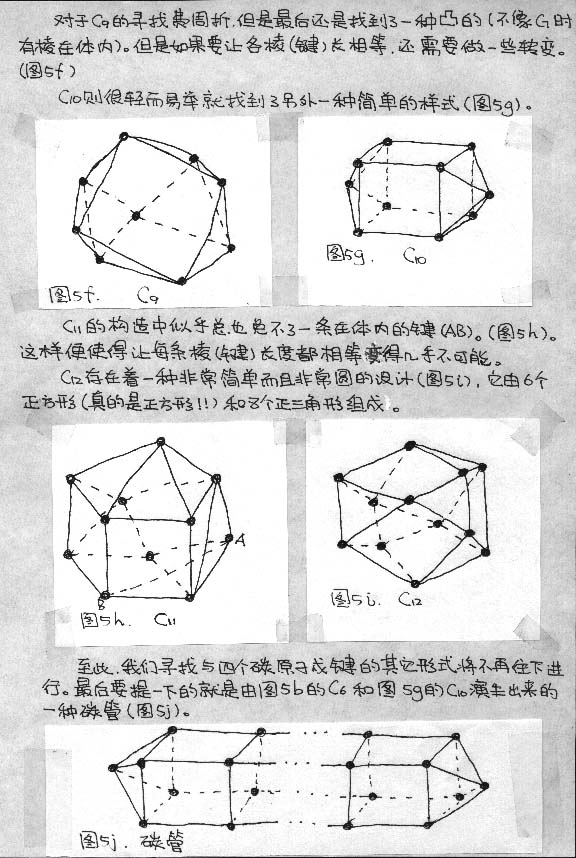 对于C9的寻找甚周折,但是最后还是找到了一种凸的(不像C7时
有棱在体内)。但是如果要让各棱(键)长相等,还需要做一些转变。
(图5f)
C10则很轻而易举就找到了另外一种简单的样式(图5g)。
图5f. C9
图5g. C10
C11的构造中似乎总也免不了一条在体内的键(AB)。(图5h)。
这样便使得让每条棱(键)长度都相等变得几乎不可能。
C12存在着一种非常简单而且非常圆的设计(图5i),它由6个
正方形(真的是正方形!!)和8个正三角形组成。
A
B
图5h. C11
图5i. C12
至此,我们寻找与四个碳原子成键的其它形式将不再往下进
行。最后要提一下的就是由图5b的C6和图5g的C10演生出来的
一种碳管(图5j)。
图5j. 碳管